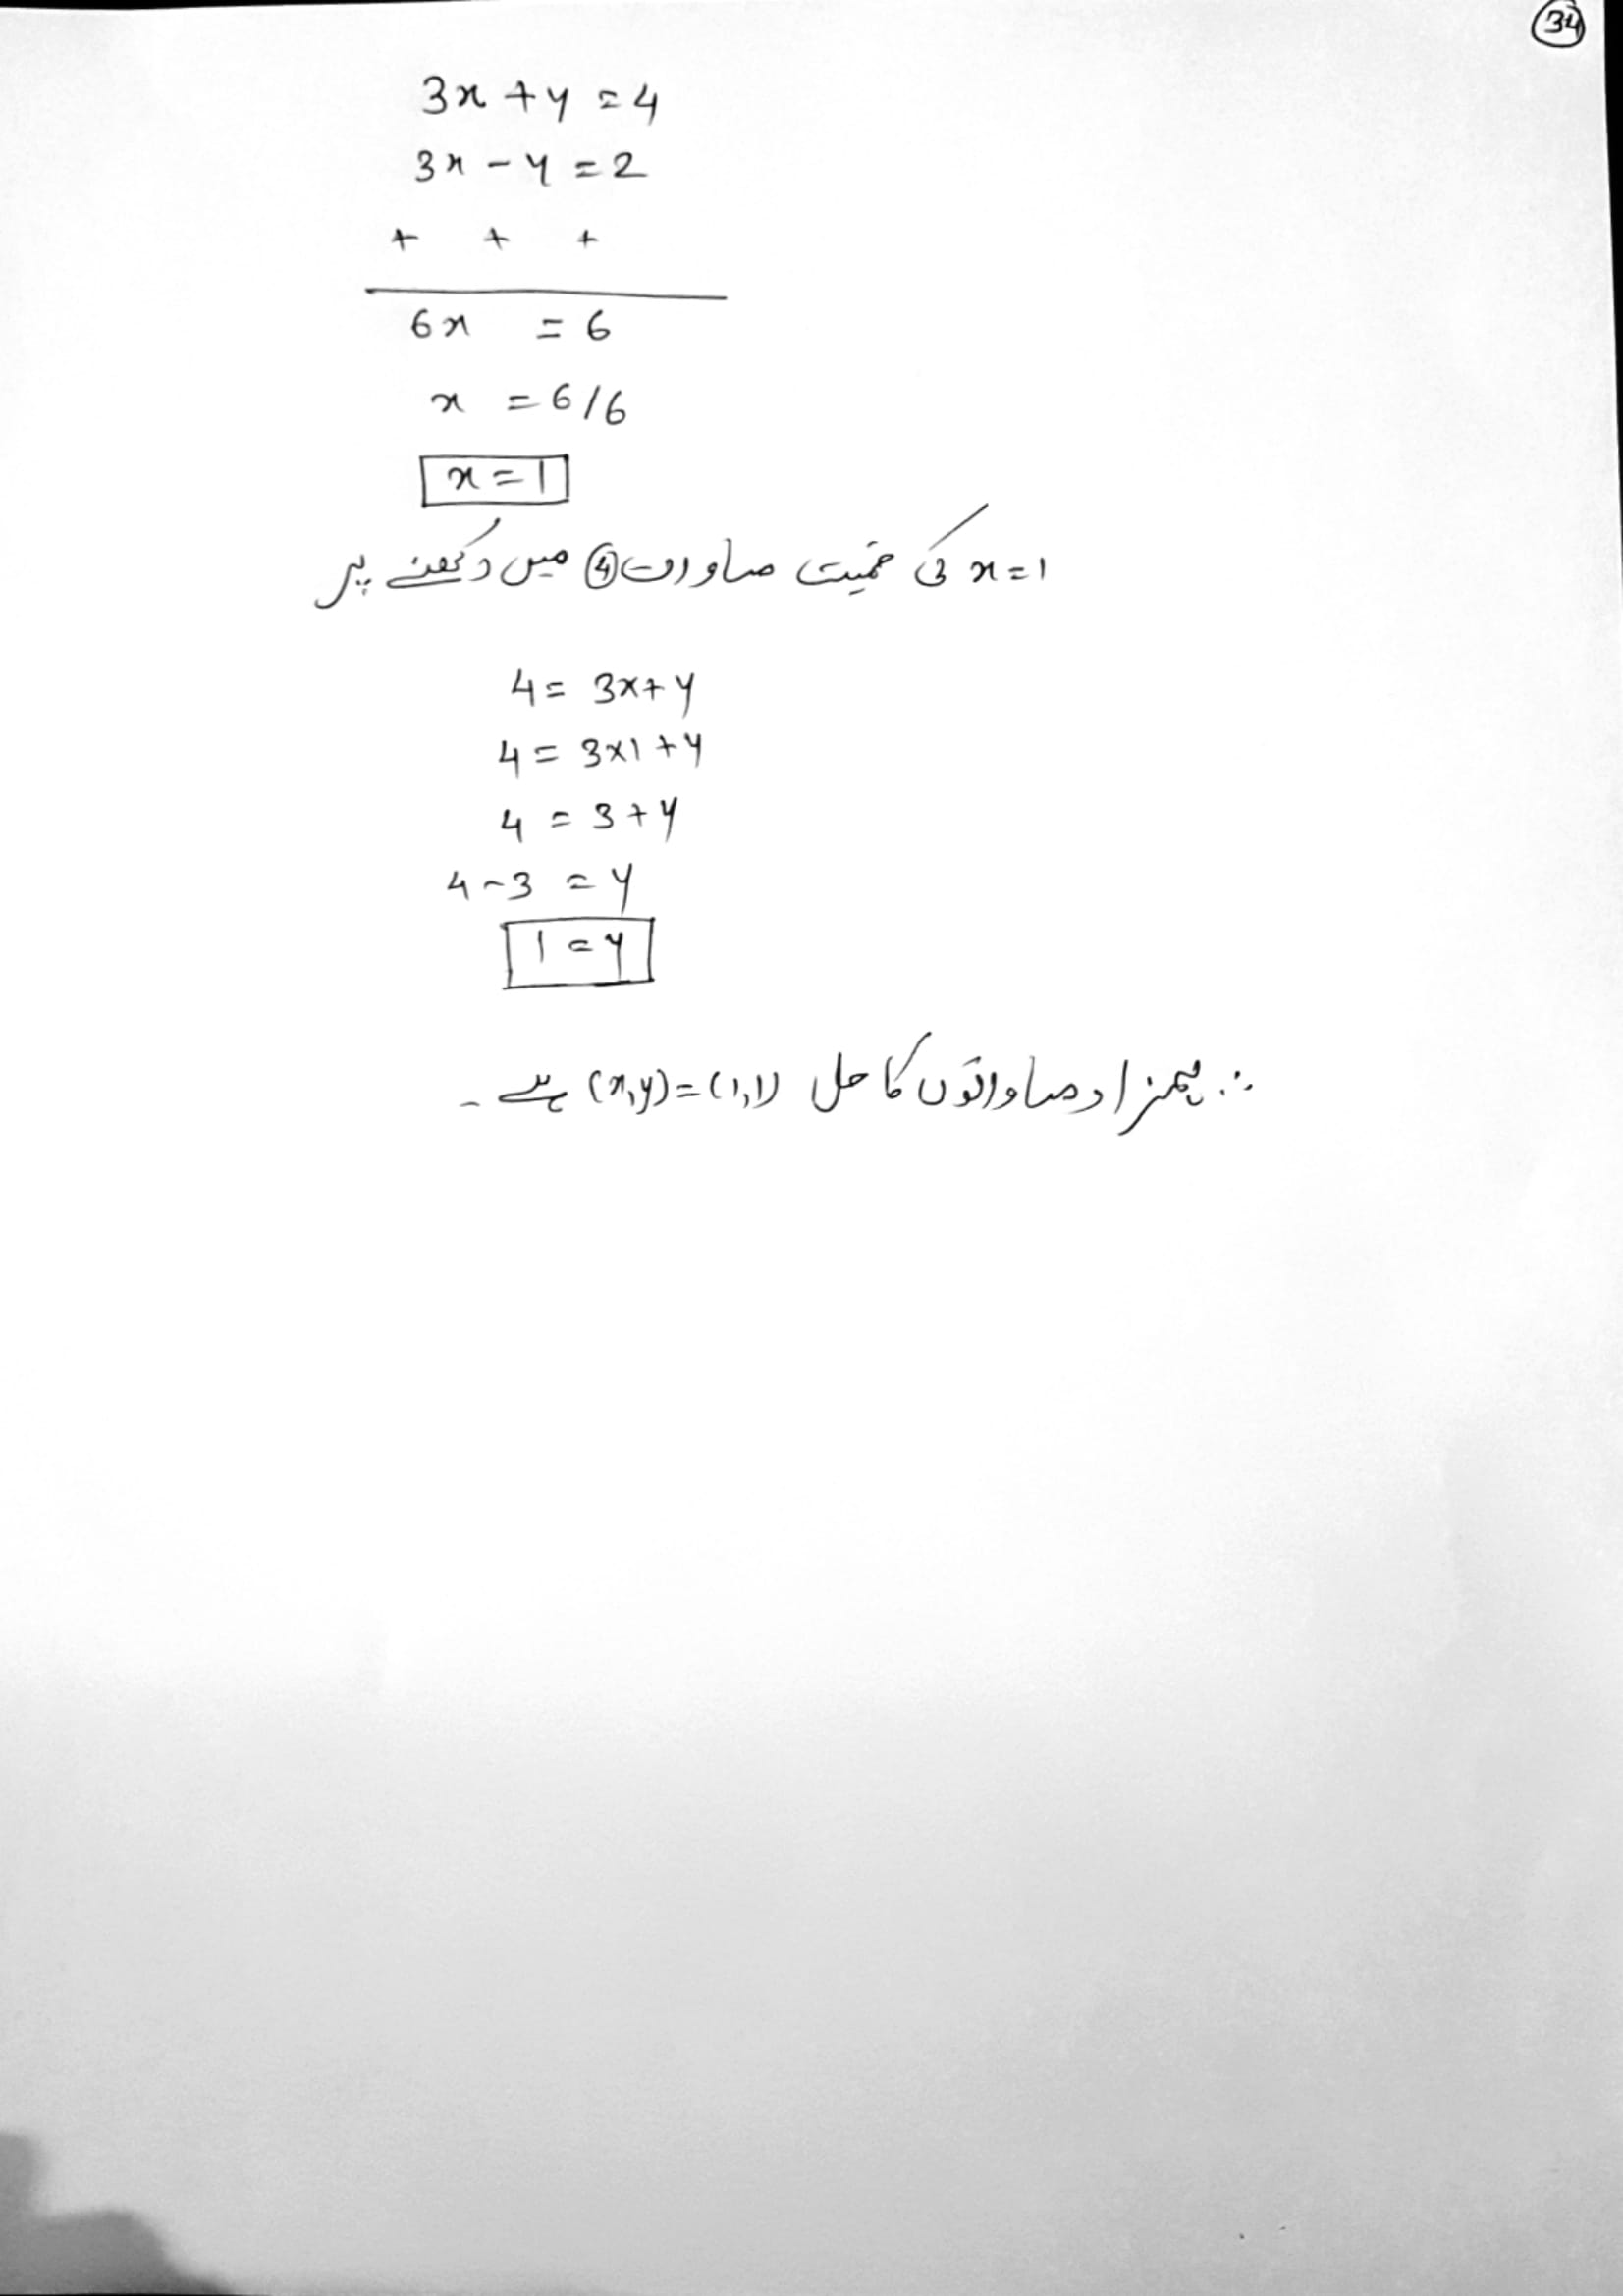 34
3x + y = 4
3x - y = 2
+ + +
6x = 6
x = 6/6
x = 1
x = 1 کی قیمت مساوات ④ میں رکھنے پر
4 = 3x + y
4 = 3×1 + y
4 = 3 + y
4 - 3 = y
1 = y
∴ ہمزاد مساواتوں کا حل (x,y) = (1,1) ہے۔